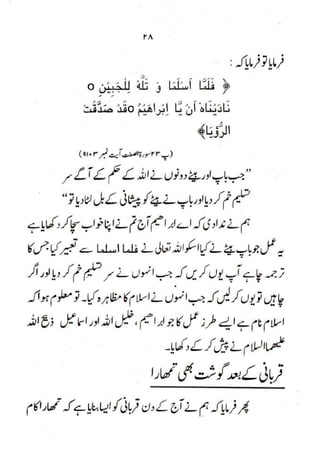 ۲۸
فرمایا تو فرمایا کہ :
﴿ فَلَمَّا اَسْلَمَا وَ تَلَّهٗ لِلْجَبِيْنِ o
نَادَيْنَاهُ اَنْ يَّا اِبْرَاهِيْمُ o قَدْ صَدَّقْتَ
الرُّؤْيَا﴾
(پ ۲۳ سورۃ الصفت آیت نمبر ۱۰۳)
”جب باپ اور بیٹے دونوں نے اللہ کے حکم کے آگے سر
تسلیم خم کر دیا اور باپ نے بیٹے کو پیشانی کے بل لٹا دیا تو“
ہم نے ندا دی کہ اے ابراھیم آج تم نے اپنا خواب سچا کر دکھایا ہے
یہ عمل جو باپ بیٹے نے کیا اسکو اللہ تعالی نے فلما اسلما سے تعبیر کیا جس کا
ترجمہ چاہے آپ یوں کریں کہ جب انہوں نے سر تسلیم خم کر دیا اور اگر
چاہیں تو یوں کر لیں کہ جب انہوں نے اسلام کا مظاہرہ کیا۔ تو معلوم ہوا کہ
اسلام نام ہے ایسے طرز عمل کا جو ابراھیم ، خلیل اللہ اور اسماعیل ذبیح اللہ
علیھما السلام نے پیش کر کے دکھایا۔
قربانی کے بعد گوشت بھی تمھارا
پھر فرمایا کہ ہم نے آج کے دن قربانی کو ایسا بنایا ہے کہ تمھارا کام